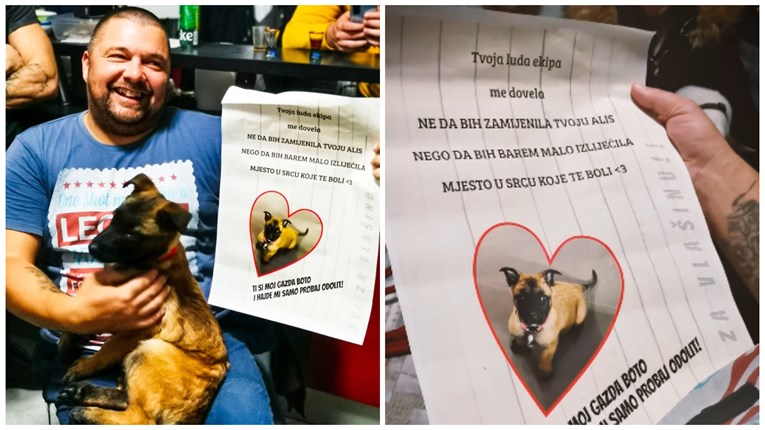 One shot
LE
Tvoja luda ekipa
me dovela
NE DA BIH ZAMIJENILA TVOJU ALIS
NEGO DA BIH BAREM MALO IZLIJEČILA
MJESTO U SRCU KOJE TE BOLI <3
TI SI MOJ GAZDA BOTO
I HAJDE MI SAMO PROBAJ ODOLIT!
Tvoja luda ekipa
me dovela
NE DA BIH ZAMIJENILA TVOJU ALIS
NEGO DA BIH BAREM MALO IZLIJEČILA
MJESTO U SRCU KOJE TE BOLI <3
MOJ GAZDA BOTO
MI SAMO PROBAJ ODOLIT!